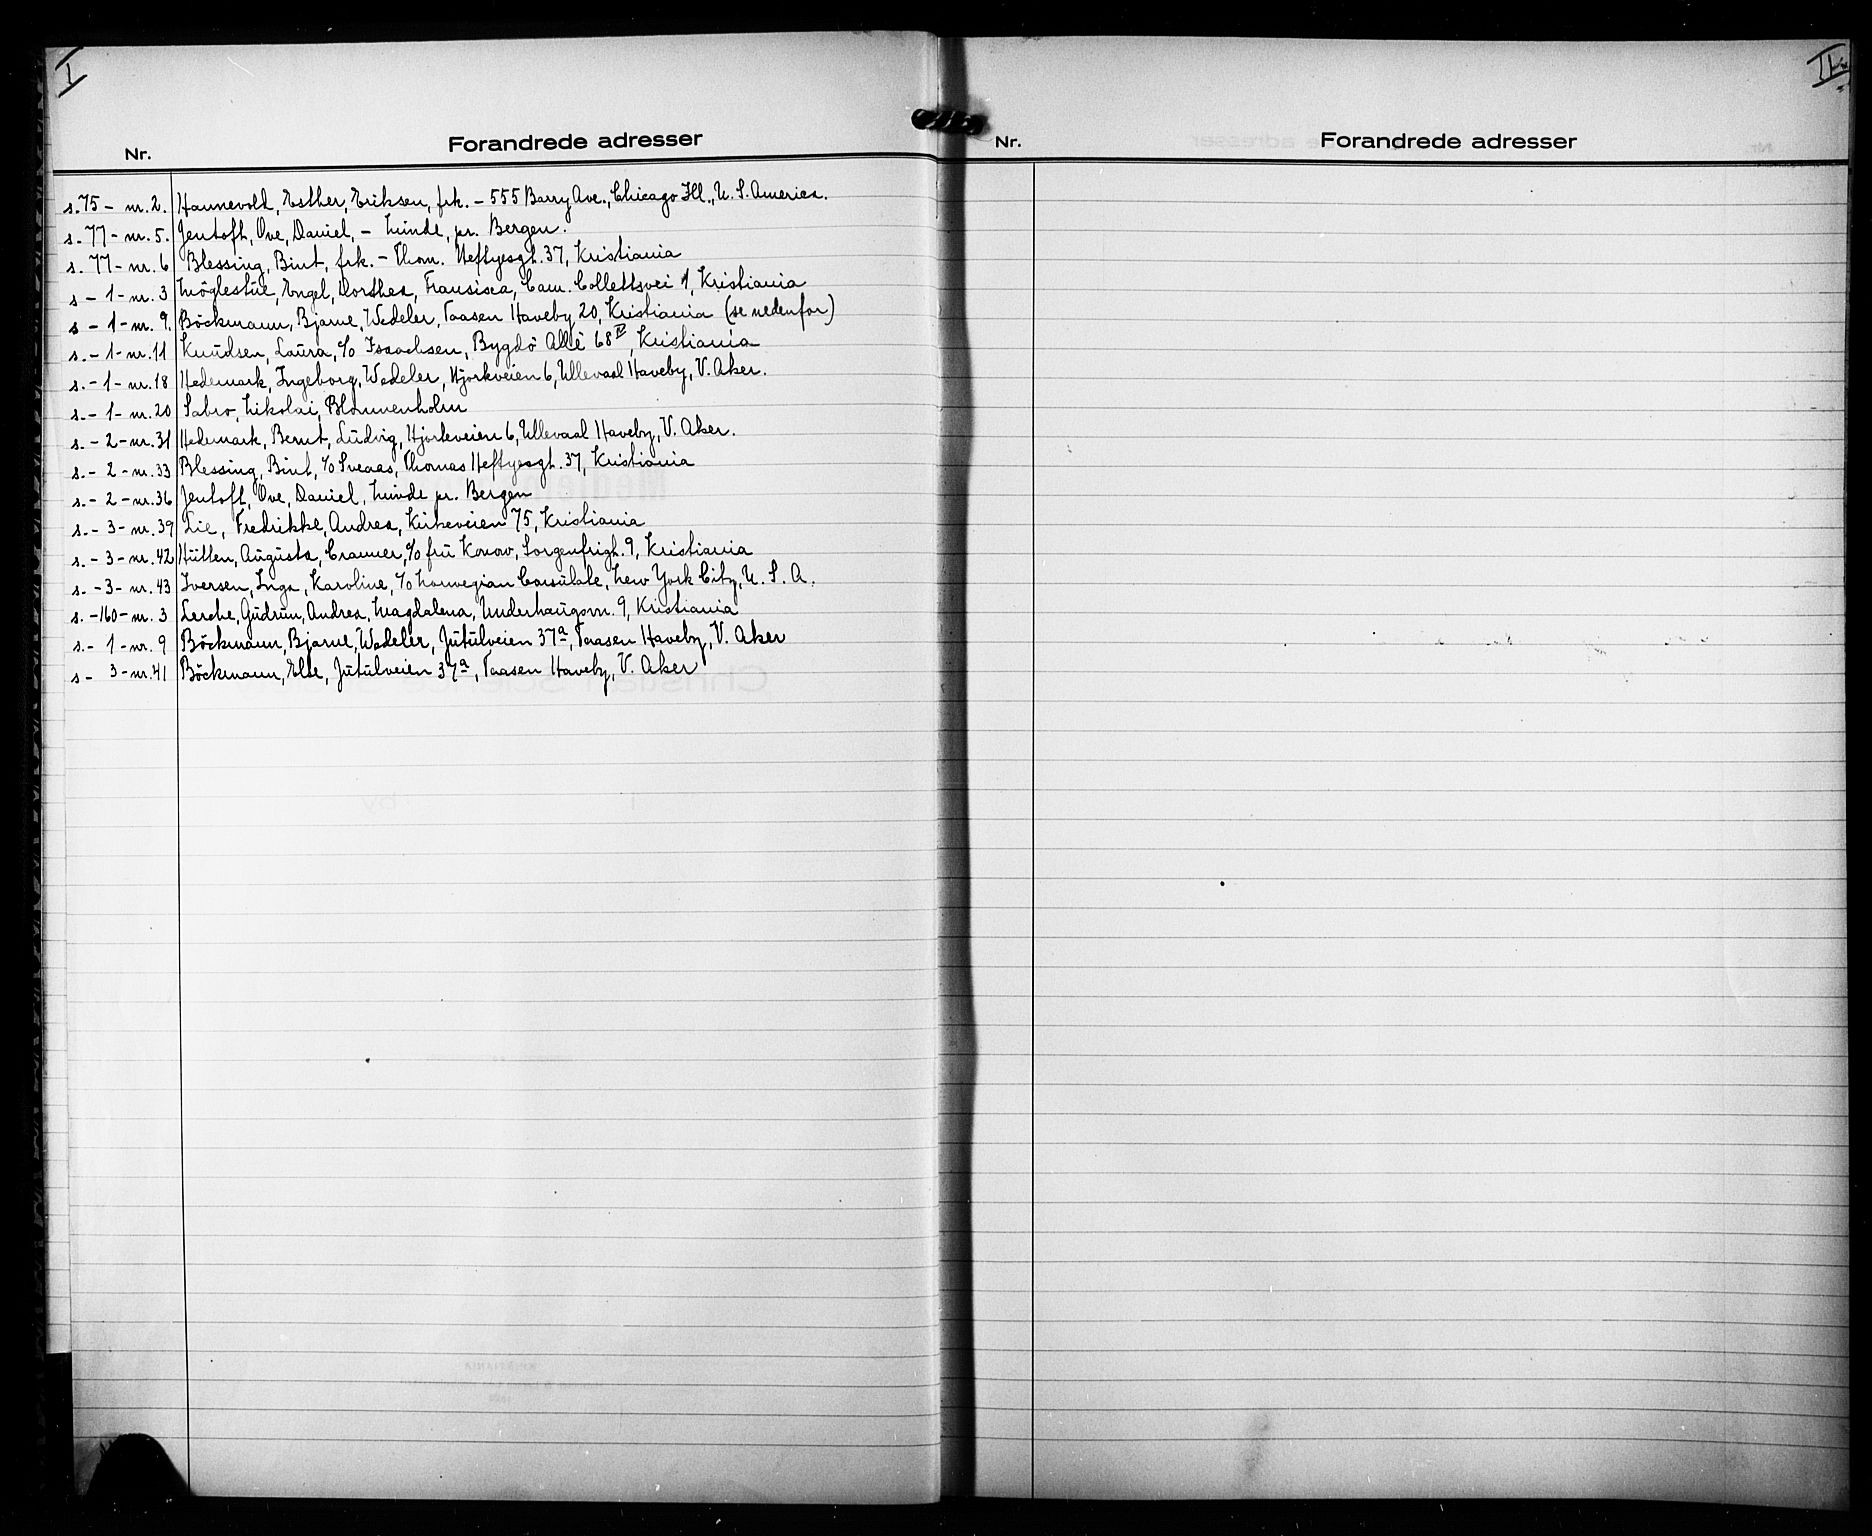 I
Nr. Forandrede adresser
s. 75 - nr. 2. Hannevold, Esther, Eriksen, frk. - 555 Barry Ave., Chicago Ill., U. S. America.
s. 77 - nr. 5. Jentoft, Ove, Daniel, - Minde, pr. Bergen.
s. 77 - nr. 6 Blessing, Bint, frk. - Thom. Heftyesgt. 37, Kristiania
s - 1 - nr. 3 Möglestue, Engel, Dorthea, Fransisca, Cam. Collettsvei 1, Kristiania
s - 1 - nr. 9. Böckmann, Bjarne, Wedeler, Taasen Haveby 20, Kristiania (se nedenfor)
s. - 1 - nr. 11 Knudsen, Laura, c/o Isaachsen, Bygdö Allé 68 IV, Kristiania
s. - 1 - nr. 18 Hedemark, Ingeborg, Wedeler, Hjorkveien 6, Ullevaal Haveby, V. Aker.
s. - 1 - nr. 20 Sabro, Nikolai, Blommenholm
s. - 2 - nr. 31 Hedemark, Bernt, Ludvig, Hjorkveien 6, Ullevaal Haveby, V. Aker.
s. - 2 - nr. 33 Blessing, Bint, c/o Sveaas, Thomas Heftyesgt. 37, Kristiania
s. - 2 - nr. 36 Jentoft, Ove, Daniel, Minde pr. Bergen
s. - 3 - nr. 39 Lie, Fredrikke, Andrea, Kirkeveien 75, Kristiania
s. - 3 - nr. 42 Hütten, Augusta, Cranner, c/o frü Konow, Sorgenfrigt. 9, Kristiania
s. - 3 - nr. 43 Iversen, Inga, Karoline, c/o Norwegian Consulate, New York City, U. S. A.
s. - 160 - nr. 3 Lerche, Gudrun, Andrea, Magdalena, Underhaugsvn. 9, Kristiania
s. - 1 - nr. 9 Böckmann, Bjarne, Wedeler, Jutulveien 37a, Taasen Haveby, V. Aker
s - 3 - nr. 41 Böckmann, Else, Jutulveien 37a, Taasen Haveby, V. Aker
II
Nr. Forandrede adresser